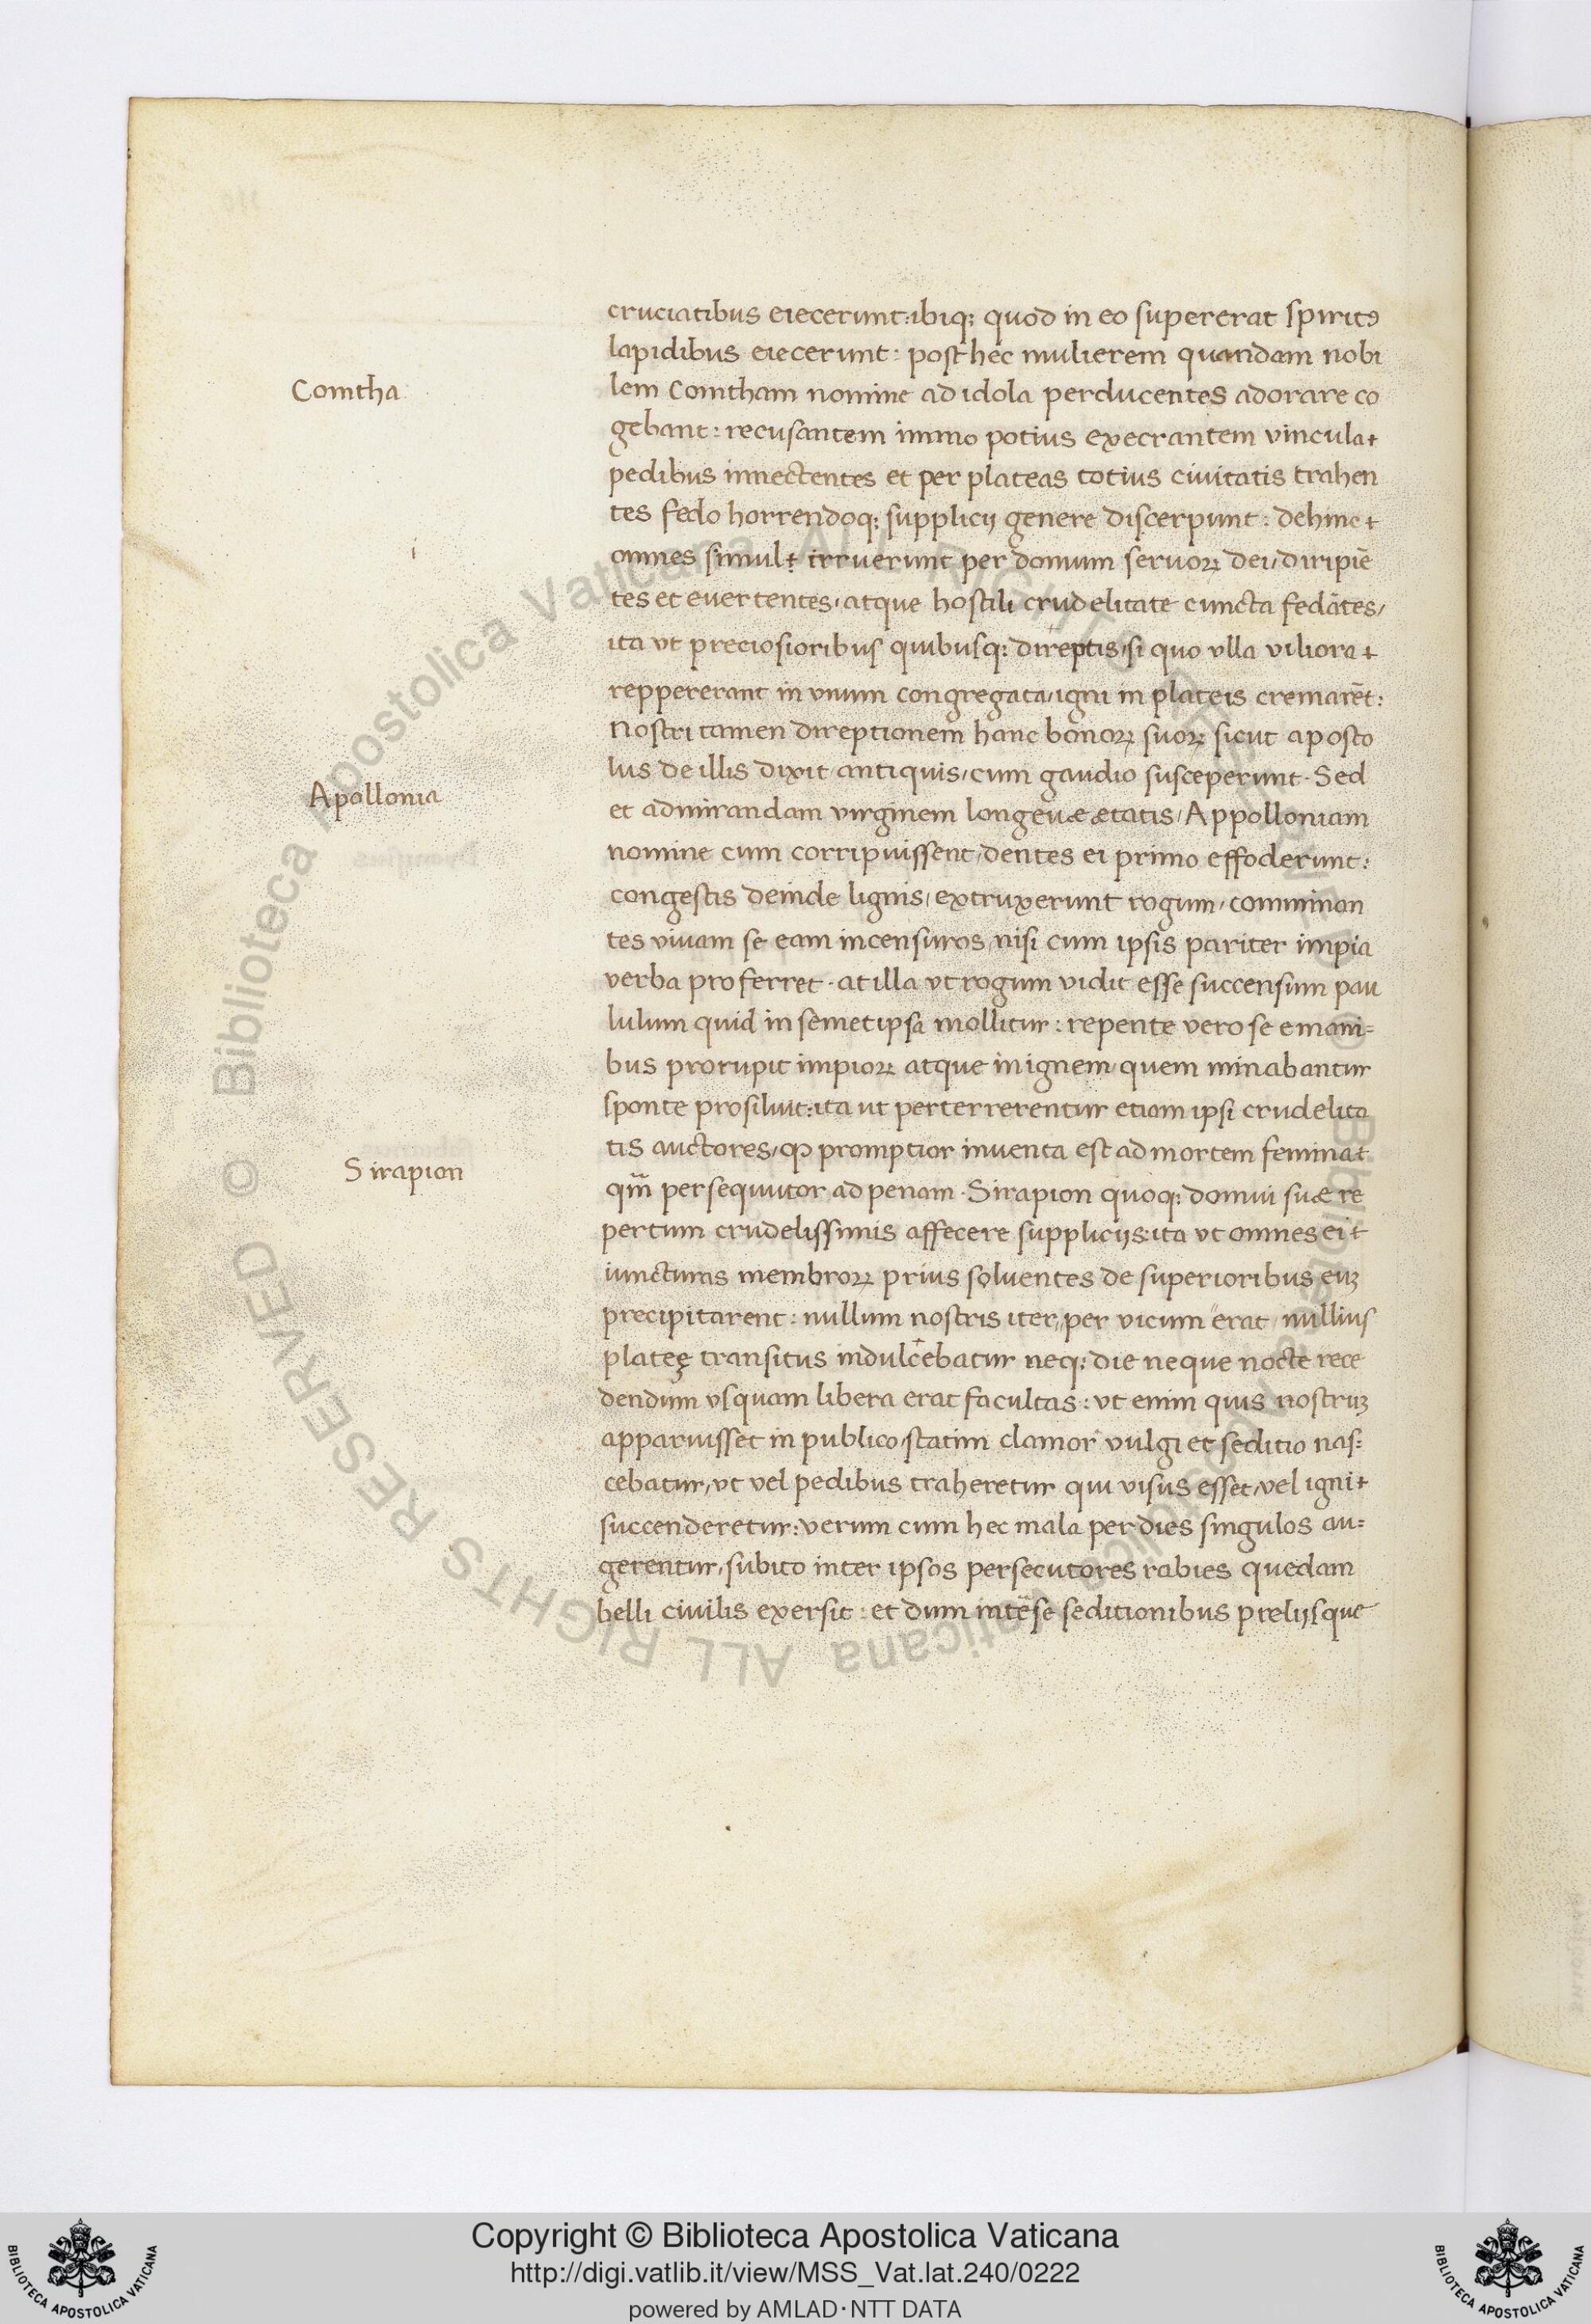 cruciatibus eiecerunt: ibiq; quod in eo supererat spiritꝰ
lapidibus eiecerunt: post hec mulierem quandam nobi
Comtha
lem Comtham nomine ad idola perducentes adorare co
gebant: recusantem immo potius execrantem vincula
pedibus innectentes et per plateas totius civitatis trahen
tes fedo horrendoq; supplicii genere discerpunt: dehinc
omnes simul irruerunt per domum servoꝝ dei, diripiē
tes et evertentes, atque hostili crudelitate cuncta fedātes,
ita vt preciosioribus quibusq; direptis, si quo vlla viliora
reppererant in vnum congregata, igni in plateis cremarēt:
Nostri tamen direptionem hanc bonoꝝ suoꝝ sicut aposto
lus de illis dixit antiquis, cum gaudio susceperunt. Sed
Apollonia
et admirandam virginem longeuæ ætatis, Appolloniam
nomine cum corripuissent, dentes ei primo effoderunt:
congestis deinde lignis, extruxerunt rogum, comminan
tes vivam se eam incensuros, nisi cum ipsis pariter impia
verba proferret. at illa vt rogum vidit esse succensum pau
lulum quid in semetipsa mollitur: repente vero se e mani=
bus prorupit impioꝝ atque in ignem quem minabantur
sponte prosiluit: ita ut perterrerentur etiam ipsi crudelita
tis auctores, ꝙ promptior inventa est ad mortem femina
Sirapion
qm̄ persequutor ad penam. Sirapion quoq; domui suæ re
pertum crudelissimis affecere suppliciis: ita vt omnes ei
iuncturas membroꝝ prius solventes de superioribus euꝫ
precipitarent: nullum nostris iter, per vicum erat nullius
plateę transitus indulcebatur neq; die neque nocte rece
dendum vsquam libera erat facultas: vt enim quis nostruꝫ
apparuisset in publico, statim clamor vulgi et seditio nas=
cebatur, vt vel pedibus traheretur qui visus esset, vel igni
succenderetur: verum cum hec mala per dies singulos au=
gerentur, subito inter ipsos persecutores rabies quedam
belli civilis exersit: et dum inter se seditionibus preliisque
© Biblioteca Apostolica Vaticana ALL RIGHTS RESERVED
Copyright © Biblioteca Apostolica Vaticana
http://digi.vatlib.it/view/MSS_Vat.lat.240/0222
powered by AMLAD·NTT DATA
BIBLIOTECA APOSTOLICA VATICANA
BIBLIOTECA APOSTOLICA VATICANA